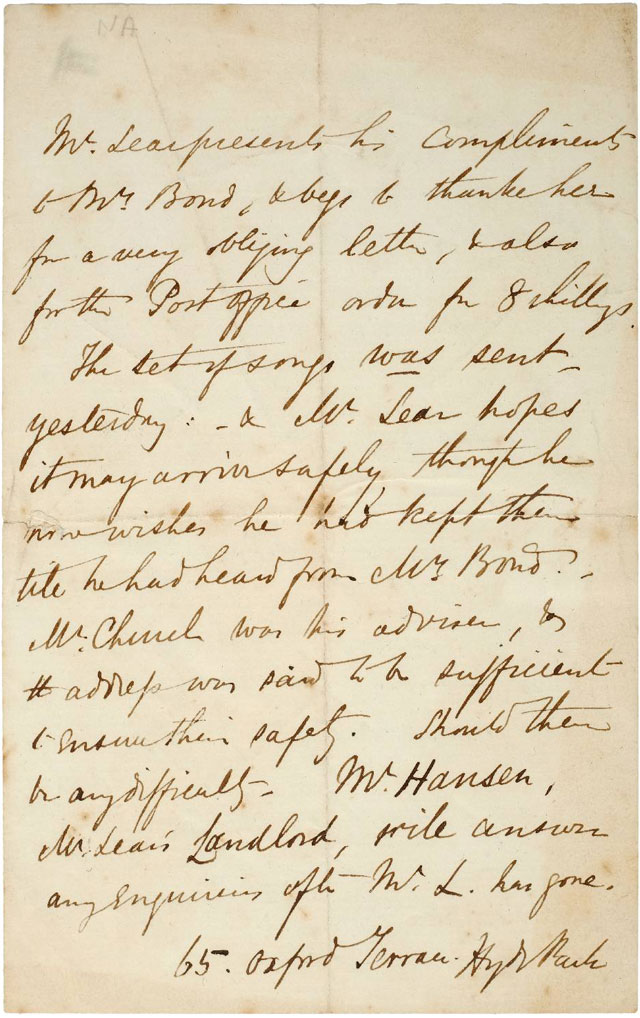 NA
Mr. Lear presents his compliments
to Mrs Bond, & begs to thank her
for a very obliging letter, & also
for the Post office order for 8 shillings.
The set of songs was sent
yesterday: - & Mr. Lear hopes
it may arrive safely, though he
now wishes he had kept them
till he had heard from Mrs Bond. -
Mr. Church was his adviser, &
address was said to be sufficient
to ensure their safety. Should there
be any difficulty - Mr. Hansen,
Mr Lear's Landlord, will answer
any enquiries after Mr. L. has gone.
65. Oxford Terrace. Hyde Park